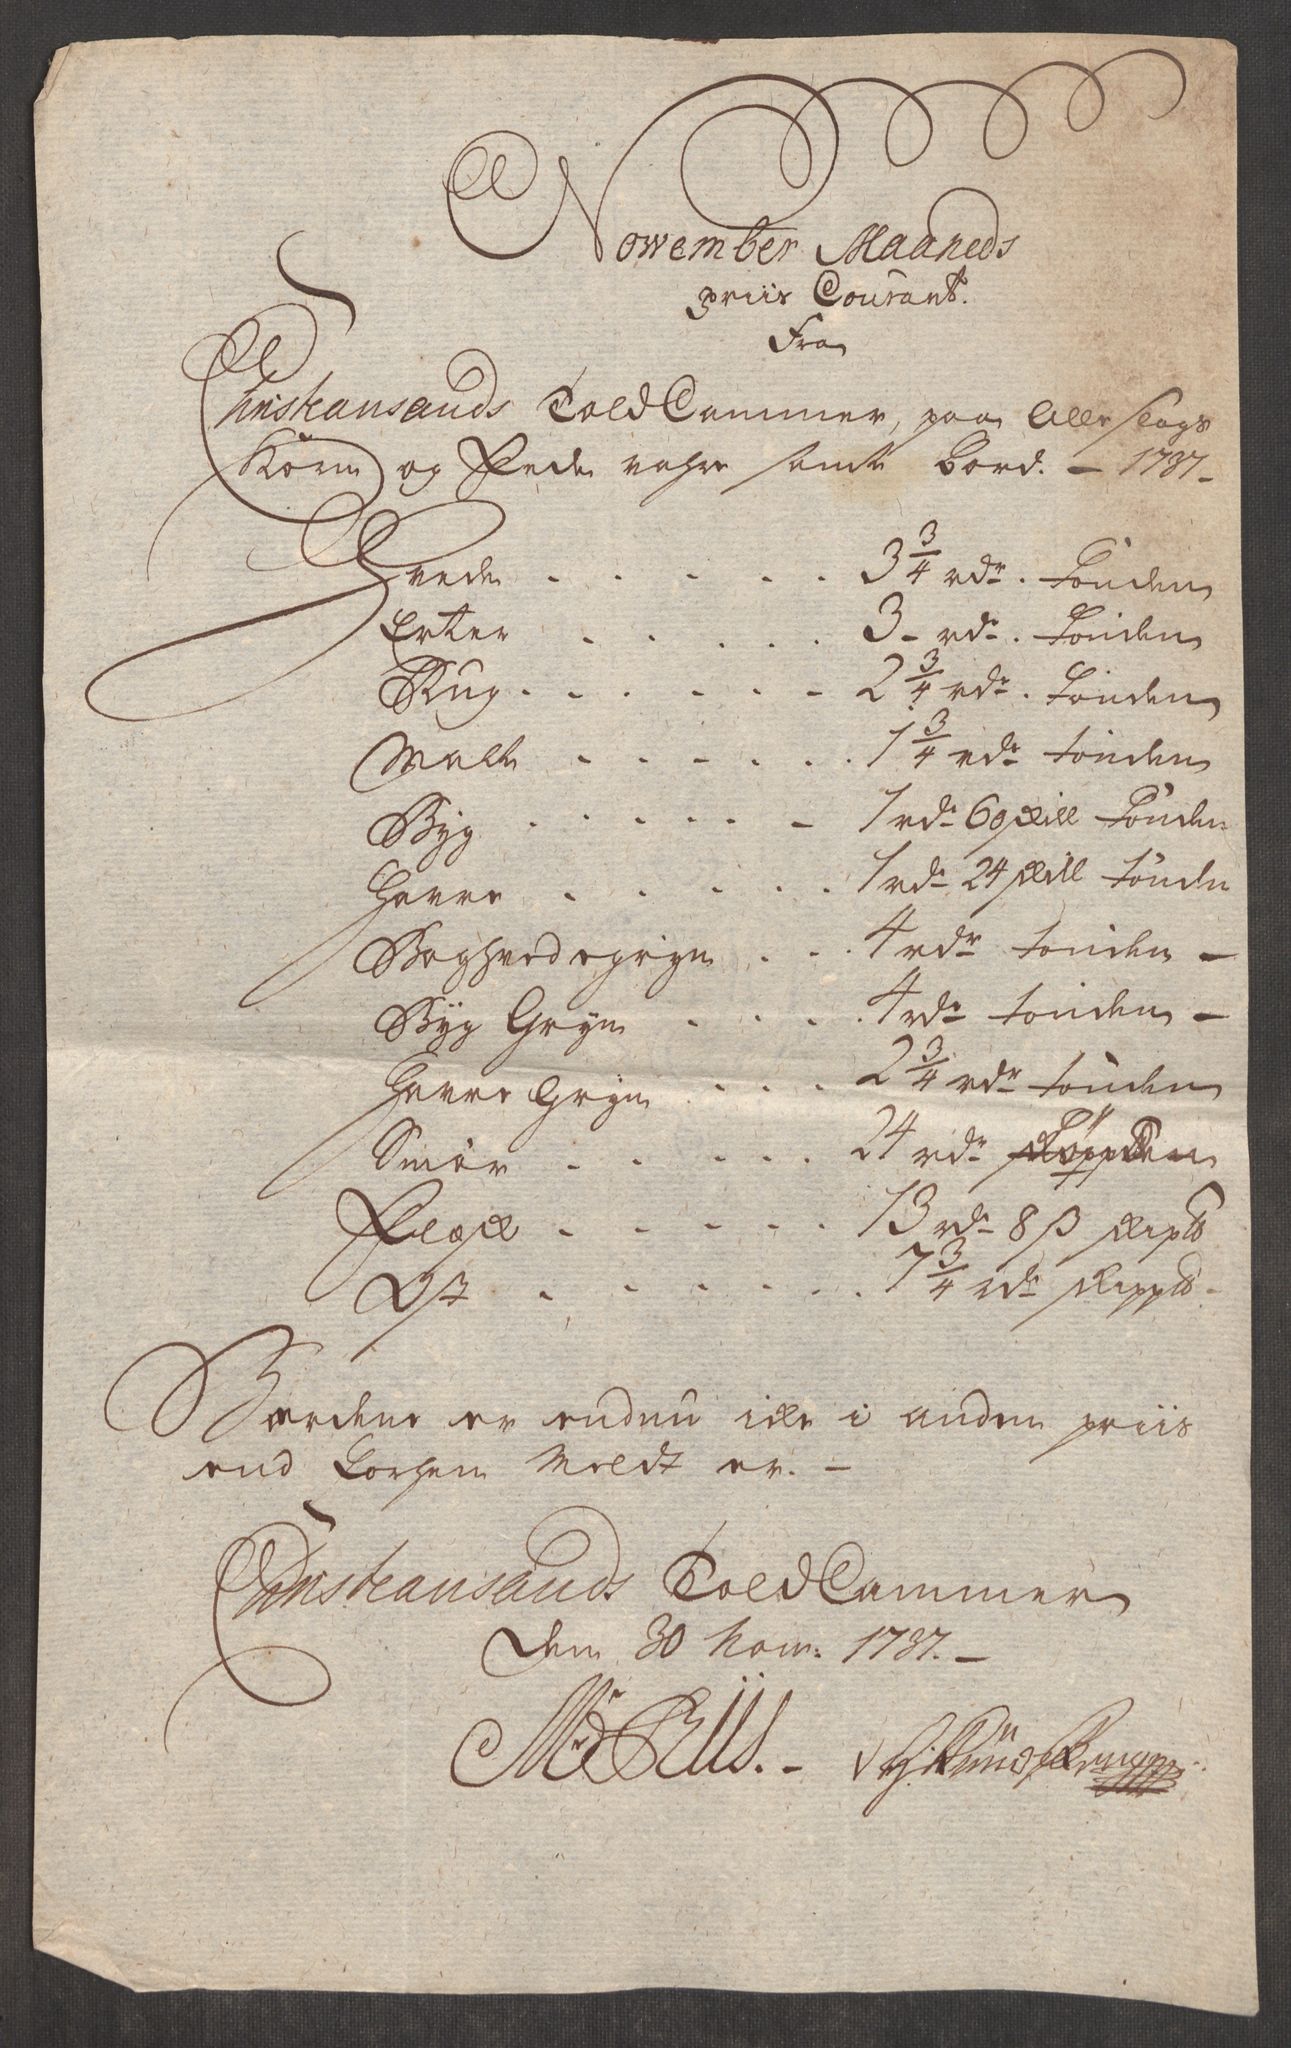 November Maaneds
priis Courant.
Fra
Christiansands Told Cammer, paa Alle slags
Korn og Fede vahre samt Bord. – 1737 –
Hvede . . . . . 3 3/4 rdr. Tønden
Erter . . . . . 3 – rdr. Tønden
Rug . . . . . . 2 3/4 rdr. Tønden
Malt . . . . . . 1 3/4 rdr tønden
Byg . . . . . – 1 rdr 60 skill Tønden
Havre . . . . . 1 rdr 24 skill tønden
Boghvedegryn . . . 4 rdr tønden –
Byg Gryn . . . . 4 rdr tønden –
Havre Gryn . . . 2 3/4 rdr tønden
Smør . . . . . 24 rdr
Flesk . . . . . 13 rdr 8 ß skip℔
Ost . . . . . . 7 3/4 rdr skipp℔ –
Bordene er endnu icke i anden priis
end forhen Meldt er. –
Christiansands Told Cammer
den 30 Nov: 1737. –